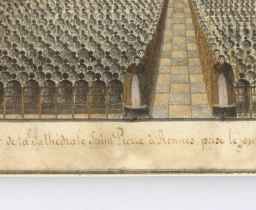 de la Cathédrale Saint Pierre à Rennes prise le jour